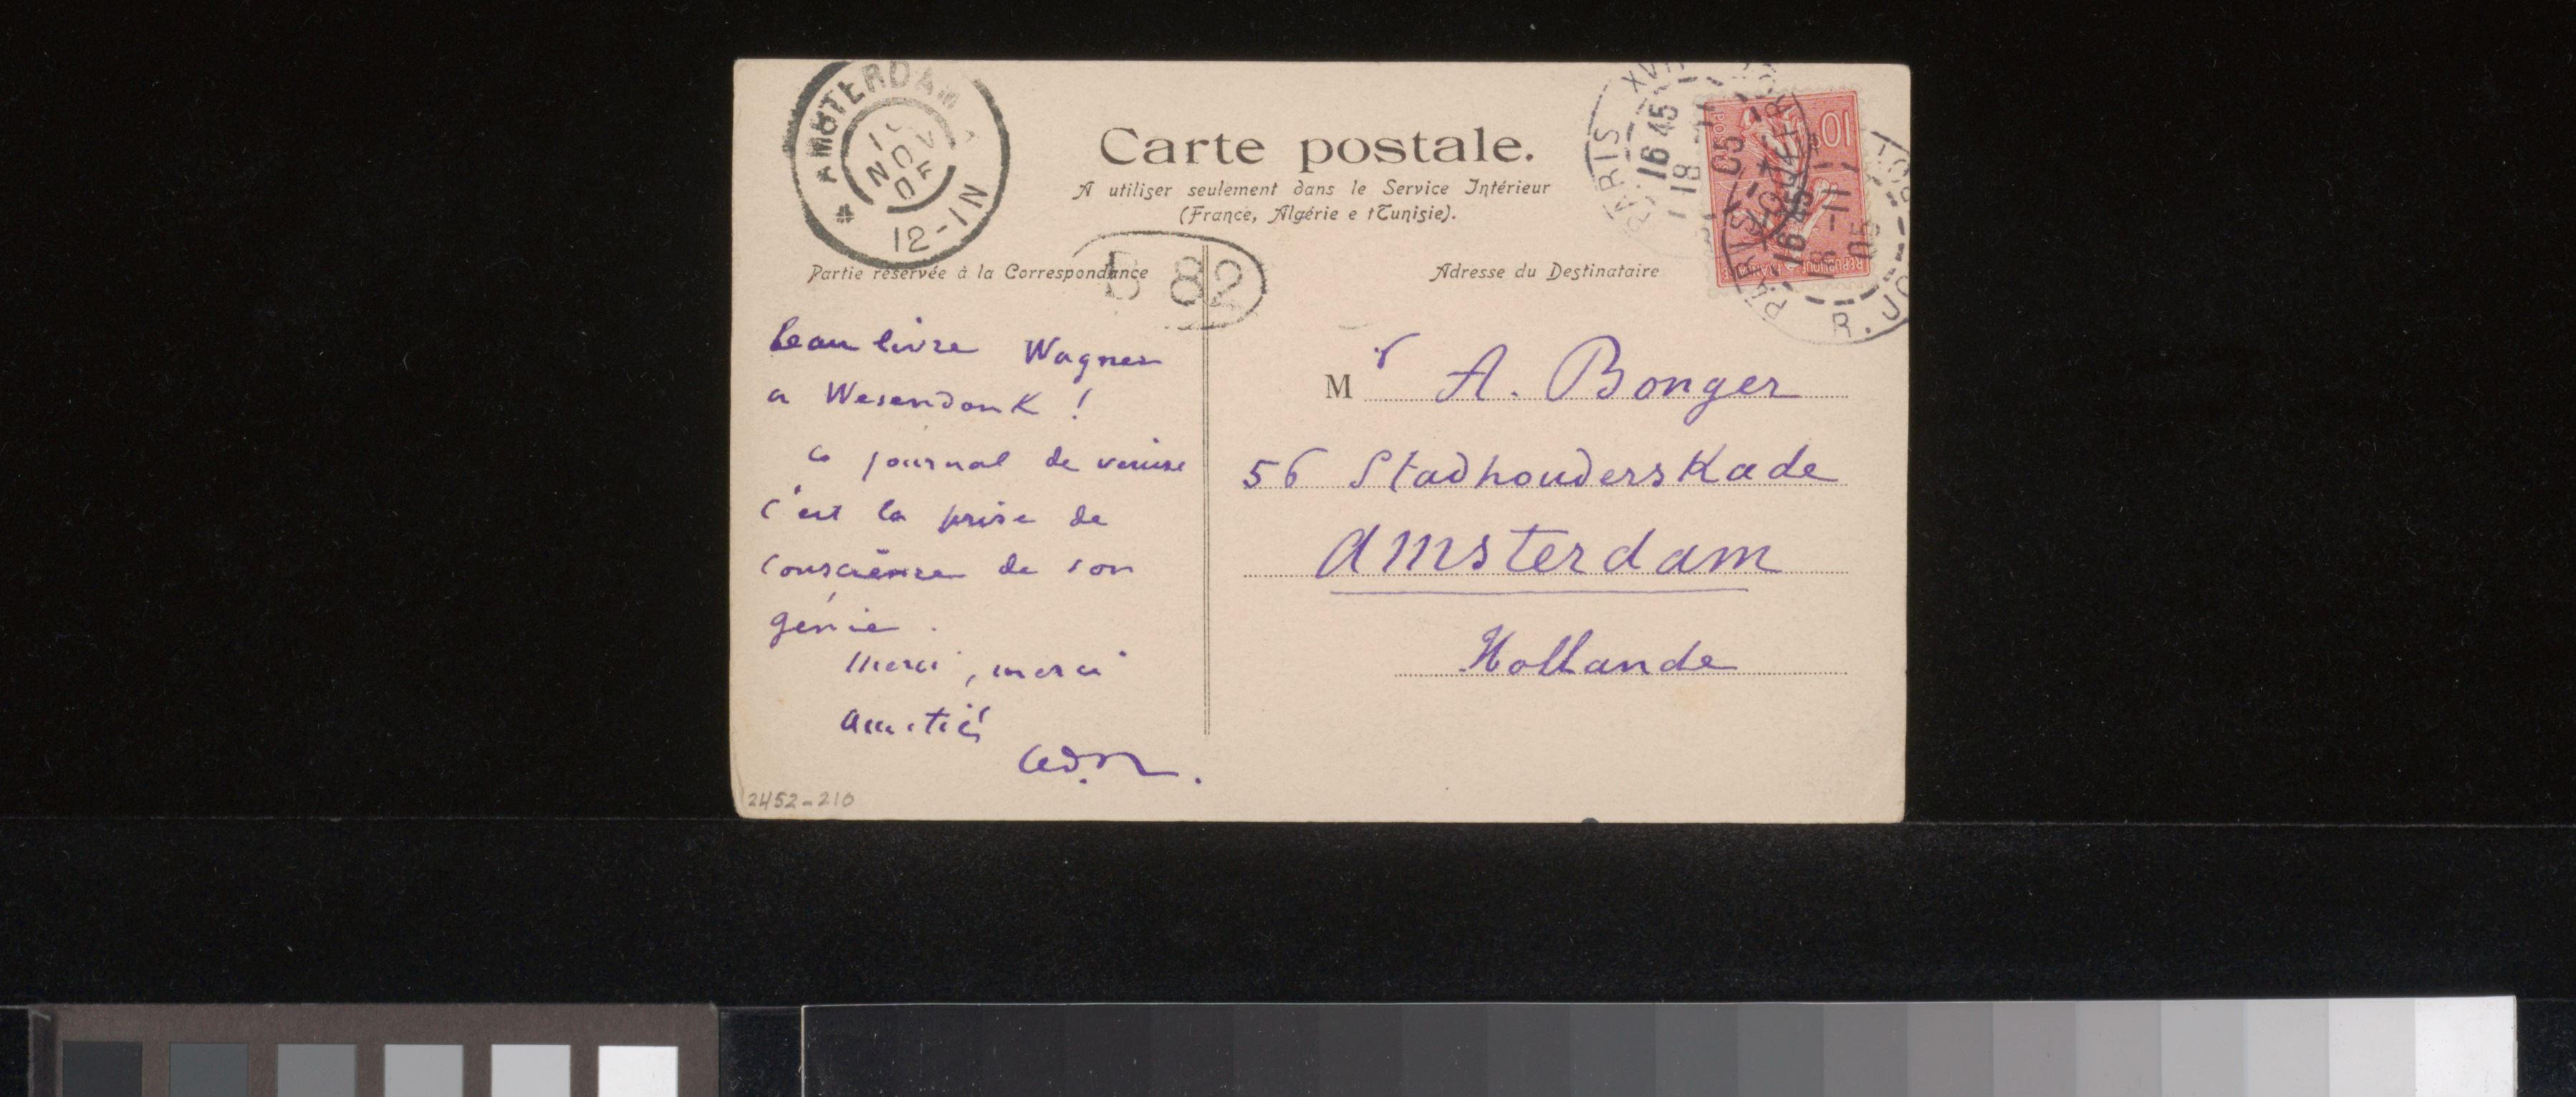 AMSTERDAM
NOV
12-1N
Carte postale.
A utiliser seulement dans le Service Intérieur
(France, Algérie e tTunisie).
PARIS XVII
16 45
18 -11
05
10
POSTES
PARIS
16 45
18 -11
05
R. JO
B 82
Partie réservée à la Correspondance
beau livre Wagner
a Wesendonk !
Ce journal de venise
c'est la prise de
conscience de son
génie.
Merci, merci
amitié
2452-210
Adresse du Destinataire
Mr A. Bonger
56 Stadhouderskade
Amsterdam
Hollande